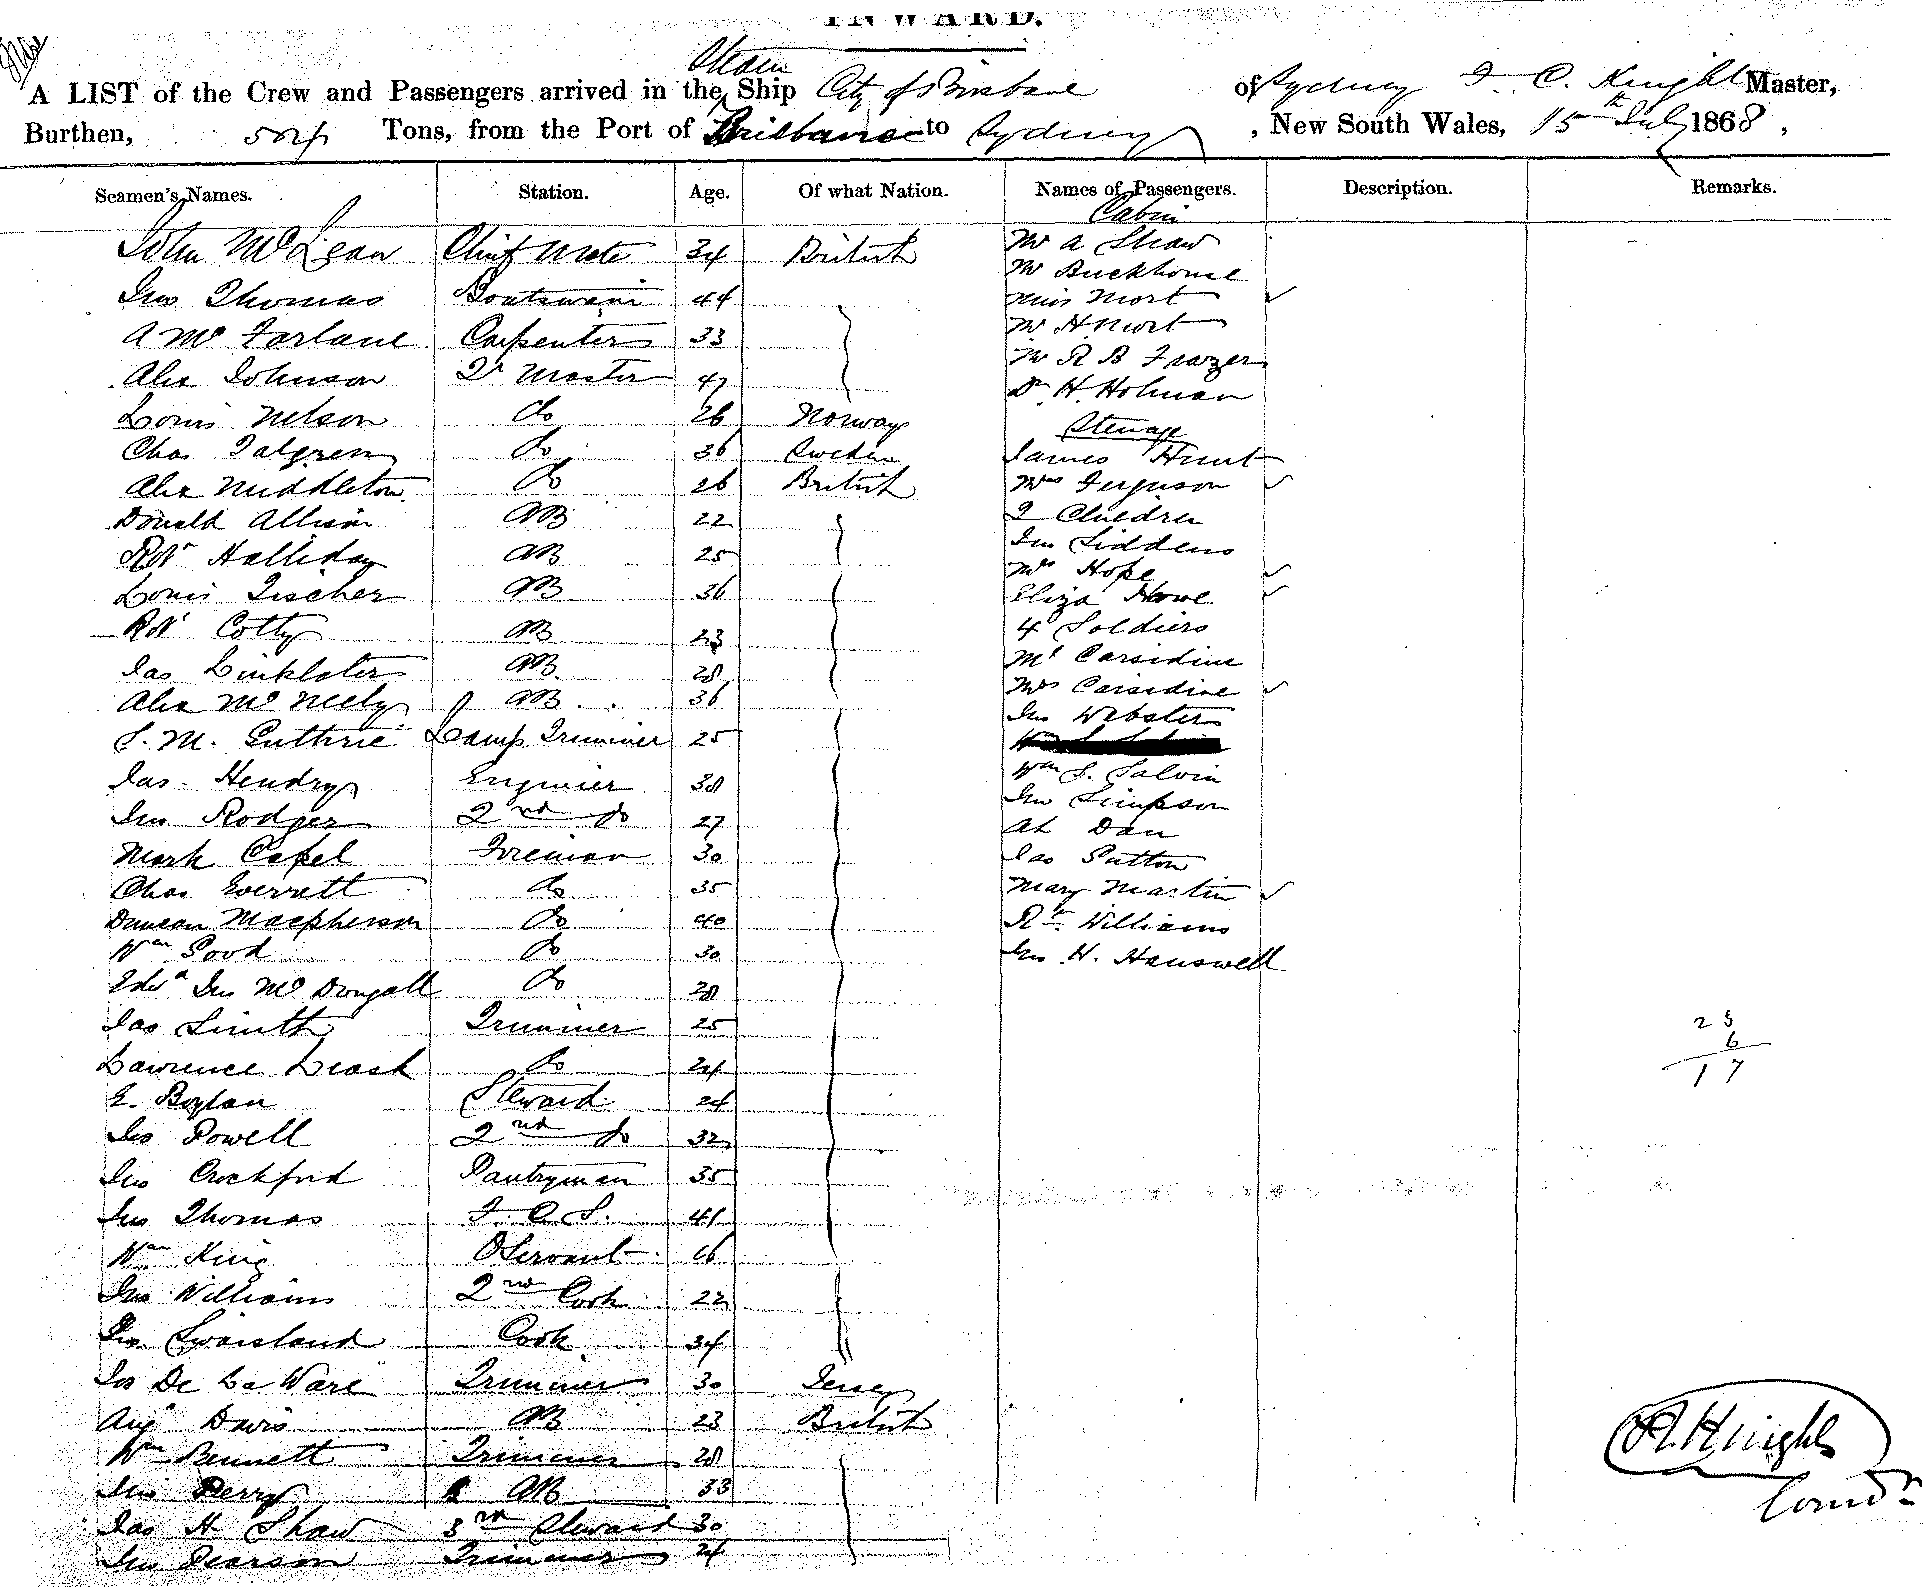 INWARD.
Steam
A LIST of the Crew and Passengers arrived in the Ship City of Brisbane of Sydney F. C. Knight Master,
Burthen, 504 Tons, from the Port of Brisbane to Sydney, New South Wales, 15th July 1868,
Seamen's Names. Station. Age. Of what Nation. Names of Passengers. Description. Remarks.
Cabin
John McLean Chief Mate 34 British Mr A Shaw
Mr Buckhouse
Jno Thomas Boatswain 44 Miss Mort
A McFarlane Carpenter 33 Mr H Mort
Mr R B Frazer
Alex Johnson Qr Master 47 Dr H. Holman
Louis Nelson do 26 Norway Steerage
Chas Talgren do 36 Sweden James Hunt
Alex Middleton do 26 British Mrs Ferguson
Donald Allison AB 22 2 Children
Robt Halliday AB 25 Jno Siddens
Mrs Hope
Louis Fischer AB 36 Eliza Howe
Robt Cotty AB 23 4 Soldiers
Jas Linklater AB 28 Mr Carsidine
Alex McNeely AB 36 Mrs Carsidine
Jno Webster
S. M. Guthrie Lamp Trimmer 25
Jas Hendry Engineer 38 Wm S. Salvin
Jno Rodger 2nd do 27 Jno Simpson
Ah Dan
Mark Capel Fireman 30 Jas Sutton
Chas Everratt do 35 Mary Martin
Duncan Macpherson do 40 Rt Williams
Wm Good do 30 Jno H. Hanswell
Edwd Jno McDougall do 28
Jas Smith Trimmer 25 23
6
17
Lawrence Leask do 24
E. Boylan Steward 24
Jno Powell 2nd do 32
Jno Crockford Pantryman 35
Jno Thomas F. C. S. 41
Wm King Servant 16
Jno Williams 2nd Cook 22
Jno Swaisland Cook 34
Jos De La Ware Trimmer 30 Jersey
Augs Davis AB 23 British
Wm Bennett Trimmer 28
Jno Perry AB 33
Jas H Shaw 3rd Steward 30
Jno Pearson Trimmer 24
Knight
Comdr